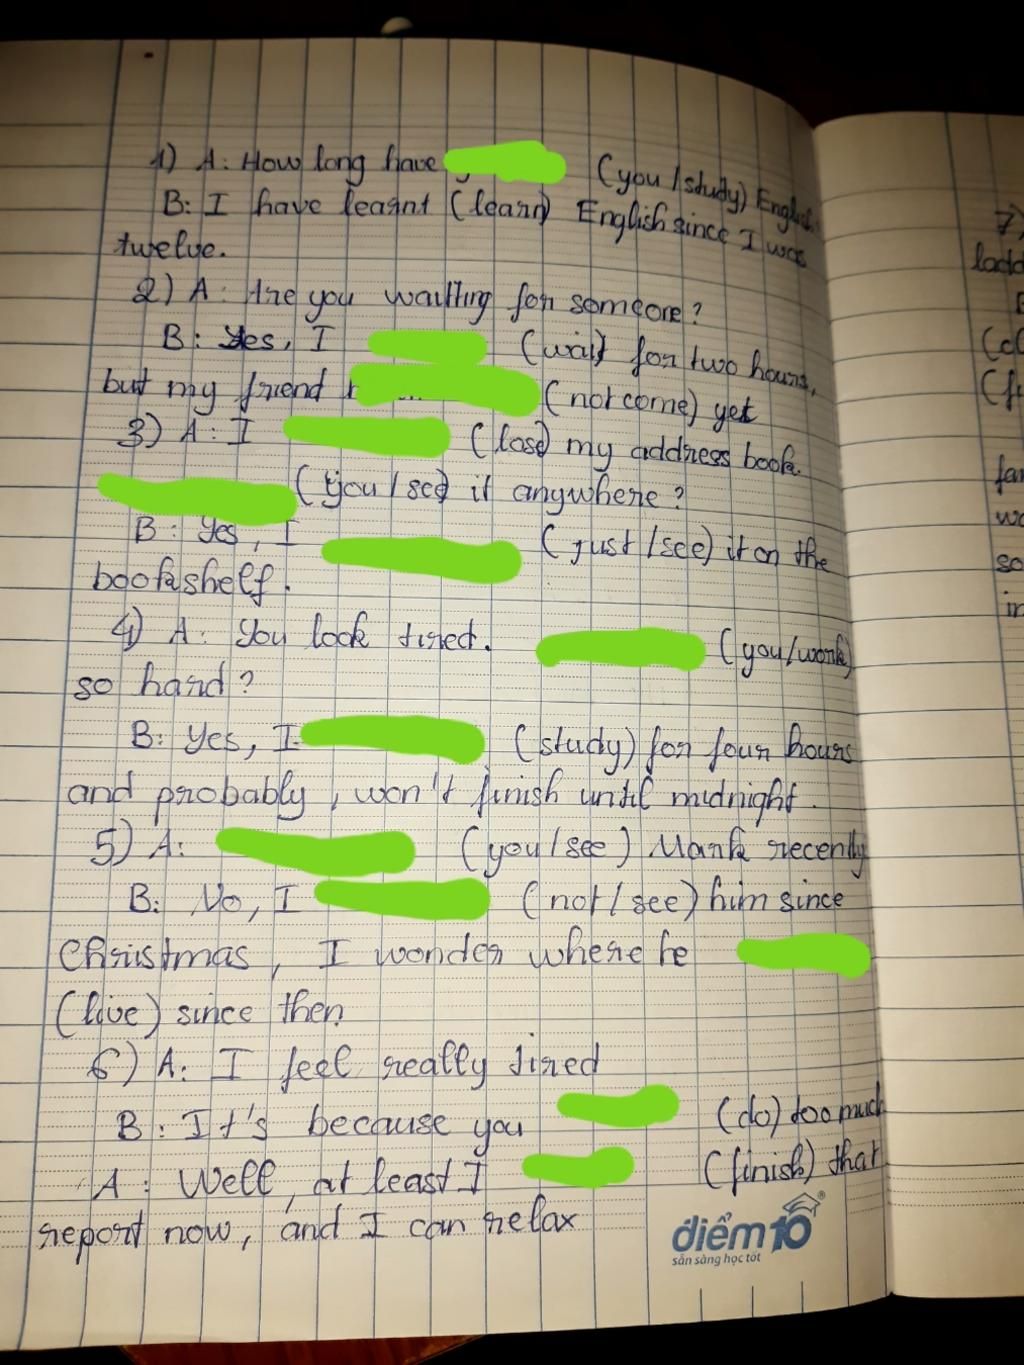 1) A: How long have (you/study) English
B: I have learnt (learn) English since I was
twelve.
2) A: Are you waiting for someone?
B: Yes, I (wait) for two hours,
but my friend (not come) yet
3) A: I (lose) my address book.
(you/see) it anywhere?
B: Yes, I (just/see) it on the
bookshelf.
4) A: You look tired. (you/work)
so hard?
B: Yes, I (study) for four hours
and probably, won't finish until midnight.
5) A: (you/see) Mark recently
B: No, I (not/see) him since
Christmas, I wonder where he
(live) since then
6) A: I feel really tired
B: It's because you (do) too much
A: Well, at least I (finish) that
report now, and I can relax
điểm10®
sẵn sàng học tốt
7)
ladd
(
far
so
in